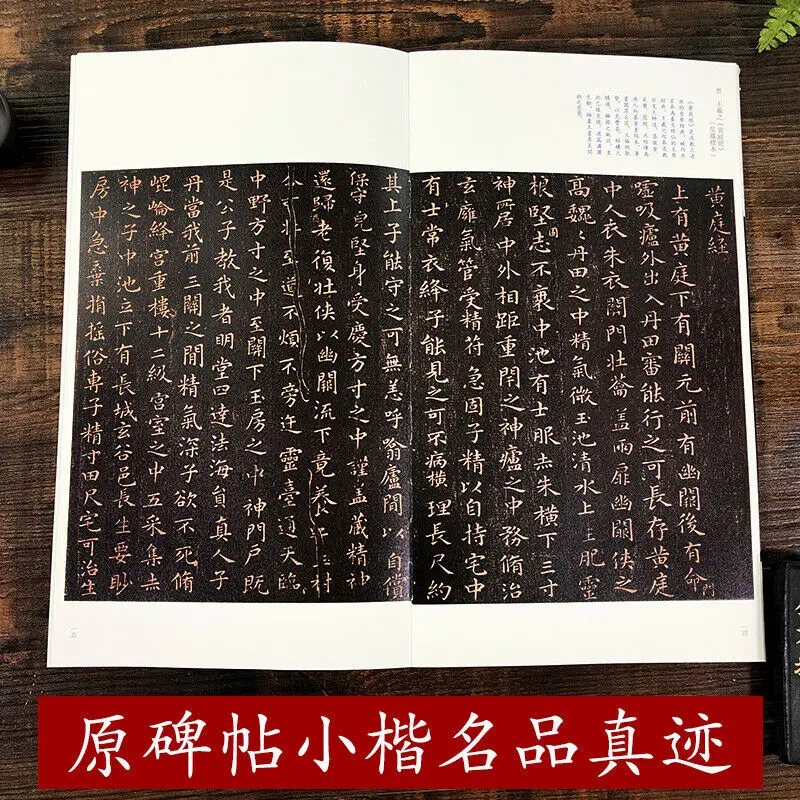 晋 王羲之《黄庭經》
黄庭経
上有黄庭下有關元前有幽闕後有命門
噓吸廬外出入丹田審能行之可長存黄庭
中人衣朱衣關門壮蘥蓋兩扉幽闕俠之
髙魏〻丹田之中精氣微玉池清水上生肥靈
根堅志不衰中池有士服赤朱横下三寸
神所居中外相距重閇之神廬之中務脩治
玄廱氣管受精符急固子精以自持宅中
有士常衣絳子能見之可不病横理長尺約
其上子能守之可無恙呼噏廬間以自償
保守皃堅身受慶方寸之中謹蓋藏精神
還歸老復壮俠以幽闕流下竟養
至道不煩不旁迕靈臺通天臨
中野方寸之中至關下玉房之中神門戶既
是公子教我者明堂四達法海負真人子
丹當我前三關之間精氣深子欲不死脩
崐崘絳宫重樓十二級宫室之中五采集赤
神之子中池立下有長城玄谷邑長生要眇
房中急棄捐揺俗專子精寸田尺宅可治生
一四
一五
原碑帖小楷名品真迹